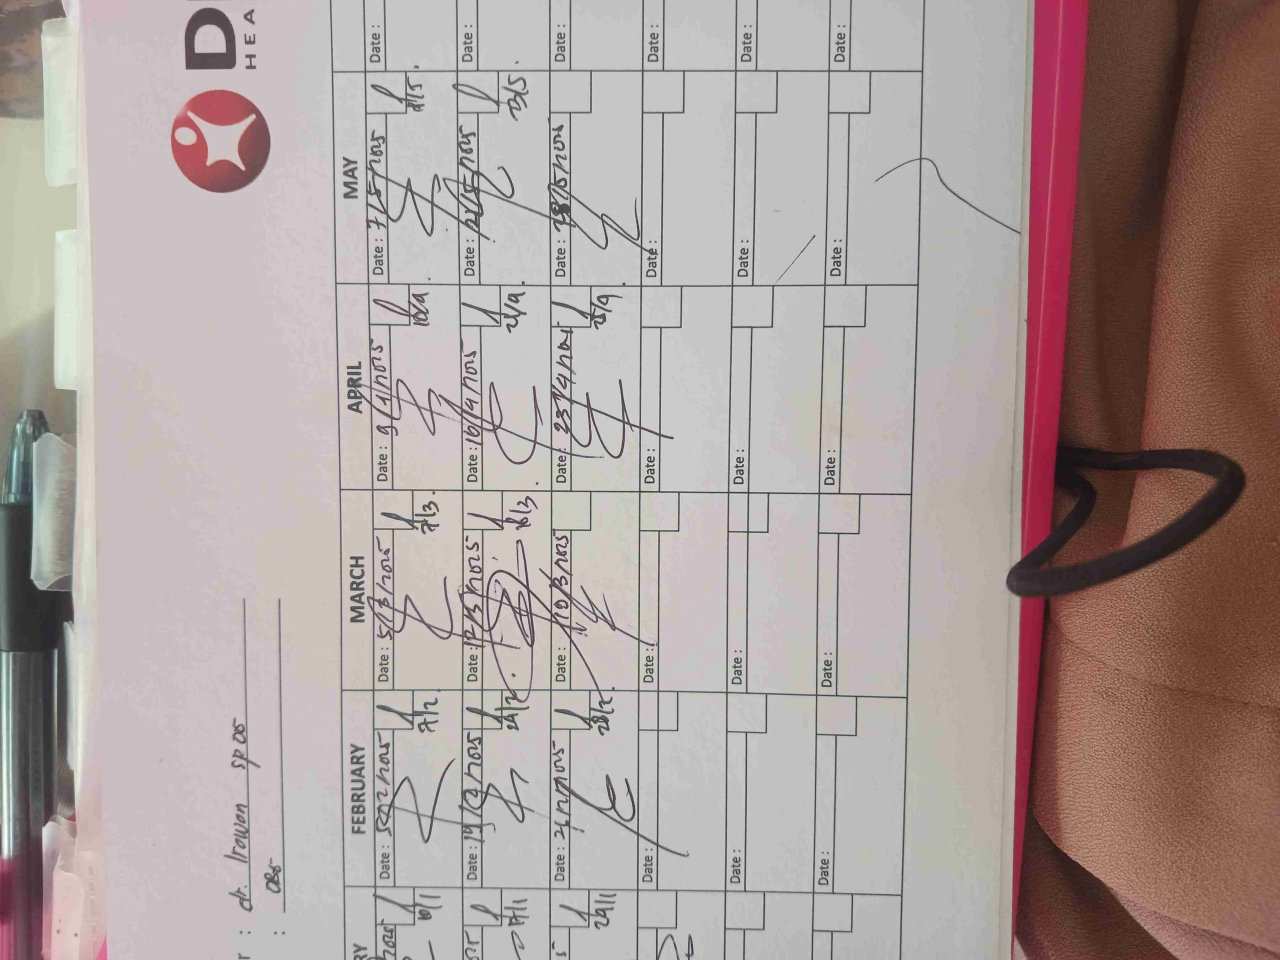 D
HEA
r : dr. Irawan sp OG
: OBS
RY FEBRUARY MARCH APRIL MAY
2025 Date : 5/2/2025 Date : 5/3/2025 Date : 9/4/2025 Date : 7/5/2025 Date :
10/1 7/2 7/3. 10/4. 9/5.
025 Date : 19/2/2025 Date : 12/3/2025 Date : 16/4/2025 Date : 21/5/2025 Date :
17/1 24/2. 18/3. 21/4. 23/5.
5 Date : 26/2/2025 Date : Date : 23/4/2025 Date : 28/5/2025 Date :
24/1 28/2. 25/4.
Date : Date : Date : Date : Date :
Date : Date : Date : Date : Date :
Date : Date : Date : Date : Date :